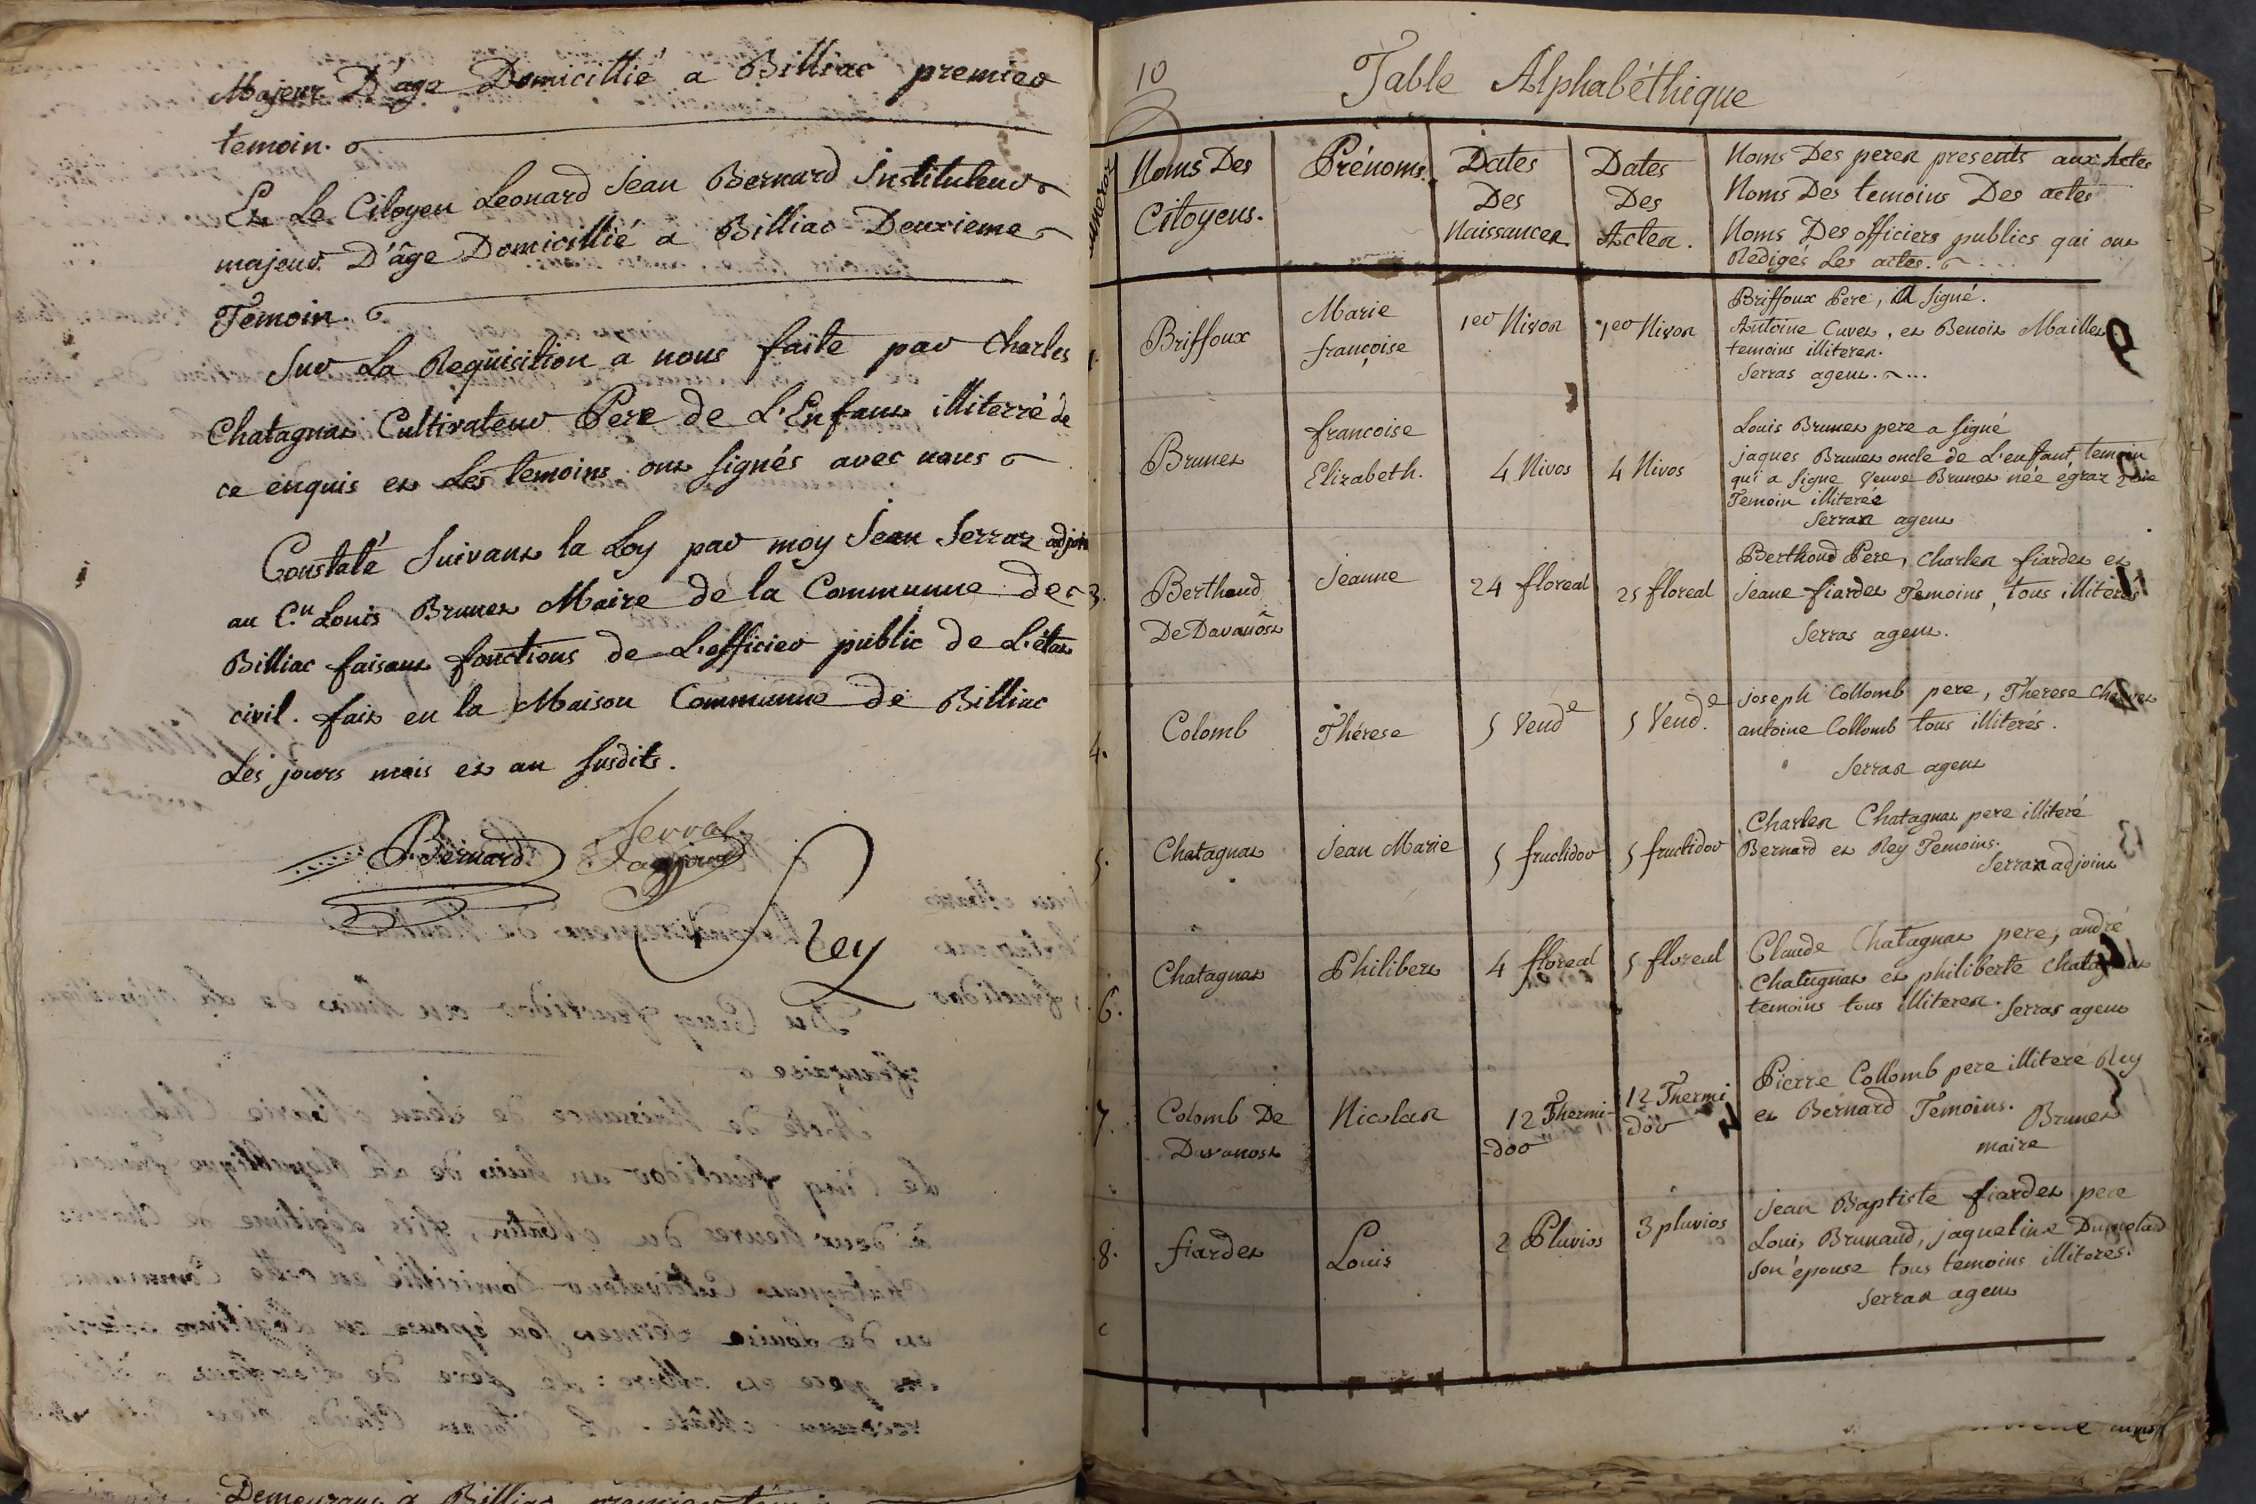 Majeur D'âge Domicillié a Billiac premier
temoin.
Et Le Citoyen Leonard Jean Bernard Instituteur
majeur D'âge Domicillié a Billiac Deuxieme
Temoin.
Sur La Requisition a nous faite par Charles
Chatagnat Cultivateur Pere de L'Enfant illiterré de
ce enquis et Les temoins ont signés avec nous
Constaté Suivant la Loy par moy Jean Serraz adjoint
au C.n Louis Brunet Maire de la Commune de
Billiac faisant fonctions de L'officier public de L'état
civil. fait en la Maison Commune de Billiac
Les jours mois et an susdits.
Bernard Serraz
adjoint
Rey
Demeurant a Billiac premier
10
Table Alphabéthique
Numeros
Noms Des
Citoyens.
Prénoms.
Dates
Des
Naissances
Dates
Des
Actes.
Noms Des peres presents aux Actes
Noms Des temoins Des actes
Noms Des officiers publics qui ont
Rédigés Les actes.
Briffoux
Marie
françoise
1er Nivos
1er Nivos
Briffoux Pere, a signé.
Antoine Cuvet, et Benoit Maillet
temoins illiteres.
Serras agent.
Brunet
francoise
Elizabeth.
4 Nivos
4 Nivos
Louis Brunet pere a signé
jaques Brunet oncle de L'enffant temoin
qui a signe Veuve Brunet née égraz
Temoin illiterée
Serraz agent
3.
Berthoud
De Davanôst
Jeanne
24 floreal
25 floreal
Berthoud Pere, Charles fiardet et
jeane fiardet Temoins, tous illiterés
Serras agent.
4.
Colomb
Thérese
5 Vend.e
5 Vend.e
joseph Collomb pere, Therese
antoine Collomb tous illiterés.
Serraz agent
5.
Chatagnat
Jean Marie
5 fructidor
5 fructidor
Charles Chatagnat pere illiteré
Bernard et Rey Temoins.
Serraz adjoint
6.
Chatagnat
Philibert
4 floreal
5 floreal
Claude Chatagnat pere, andré
Chatagnat et philiberte Chatagnat
temoins tous illiteres. Serras agent
7.
Colomb De
Davanost
Nicolas
12 Thermi-
-dor
12 Thermi
dor
Pierre Collomb pere illiteré Rey
et Bernard Temoins.
Brunet
maire
8.
fiardet
Louis
2 Pluvios
3 pluvios
jean Baptiste fiardet pere
Louis Brunaud, jaqueline Dumolard
son épouse tous temoins illiteres.
Serraz agent